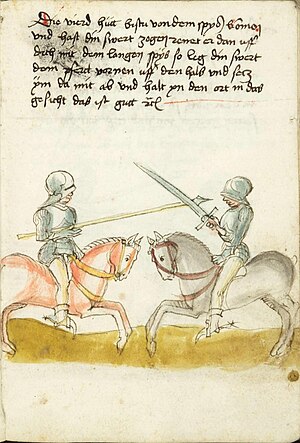 Die vierd hůtt bistu von dem spyß komen
und hast din swert zogen renet er dan uff
dich mit dem langen spyß so leg din swert
dem pfertt vornen uff den halß und setz
ym da mit ab und halt ym den ort in das
gesicht das ist gutt